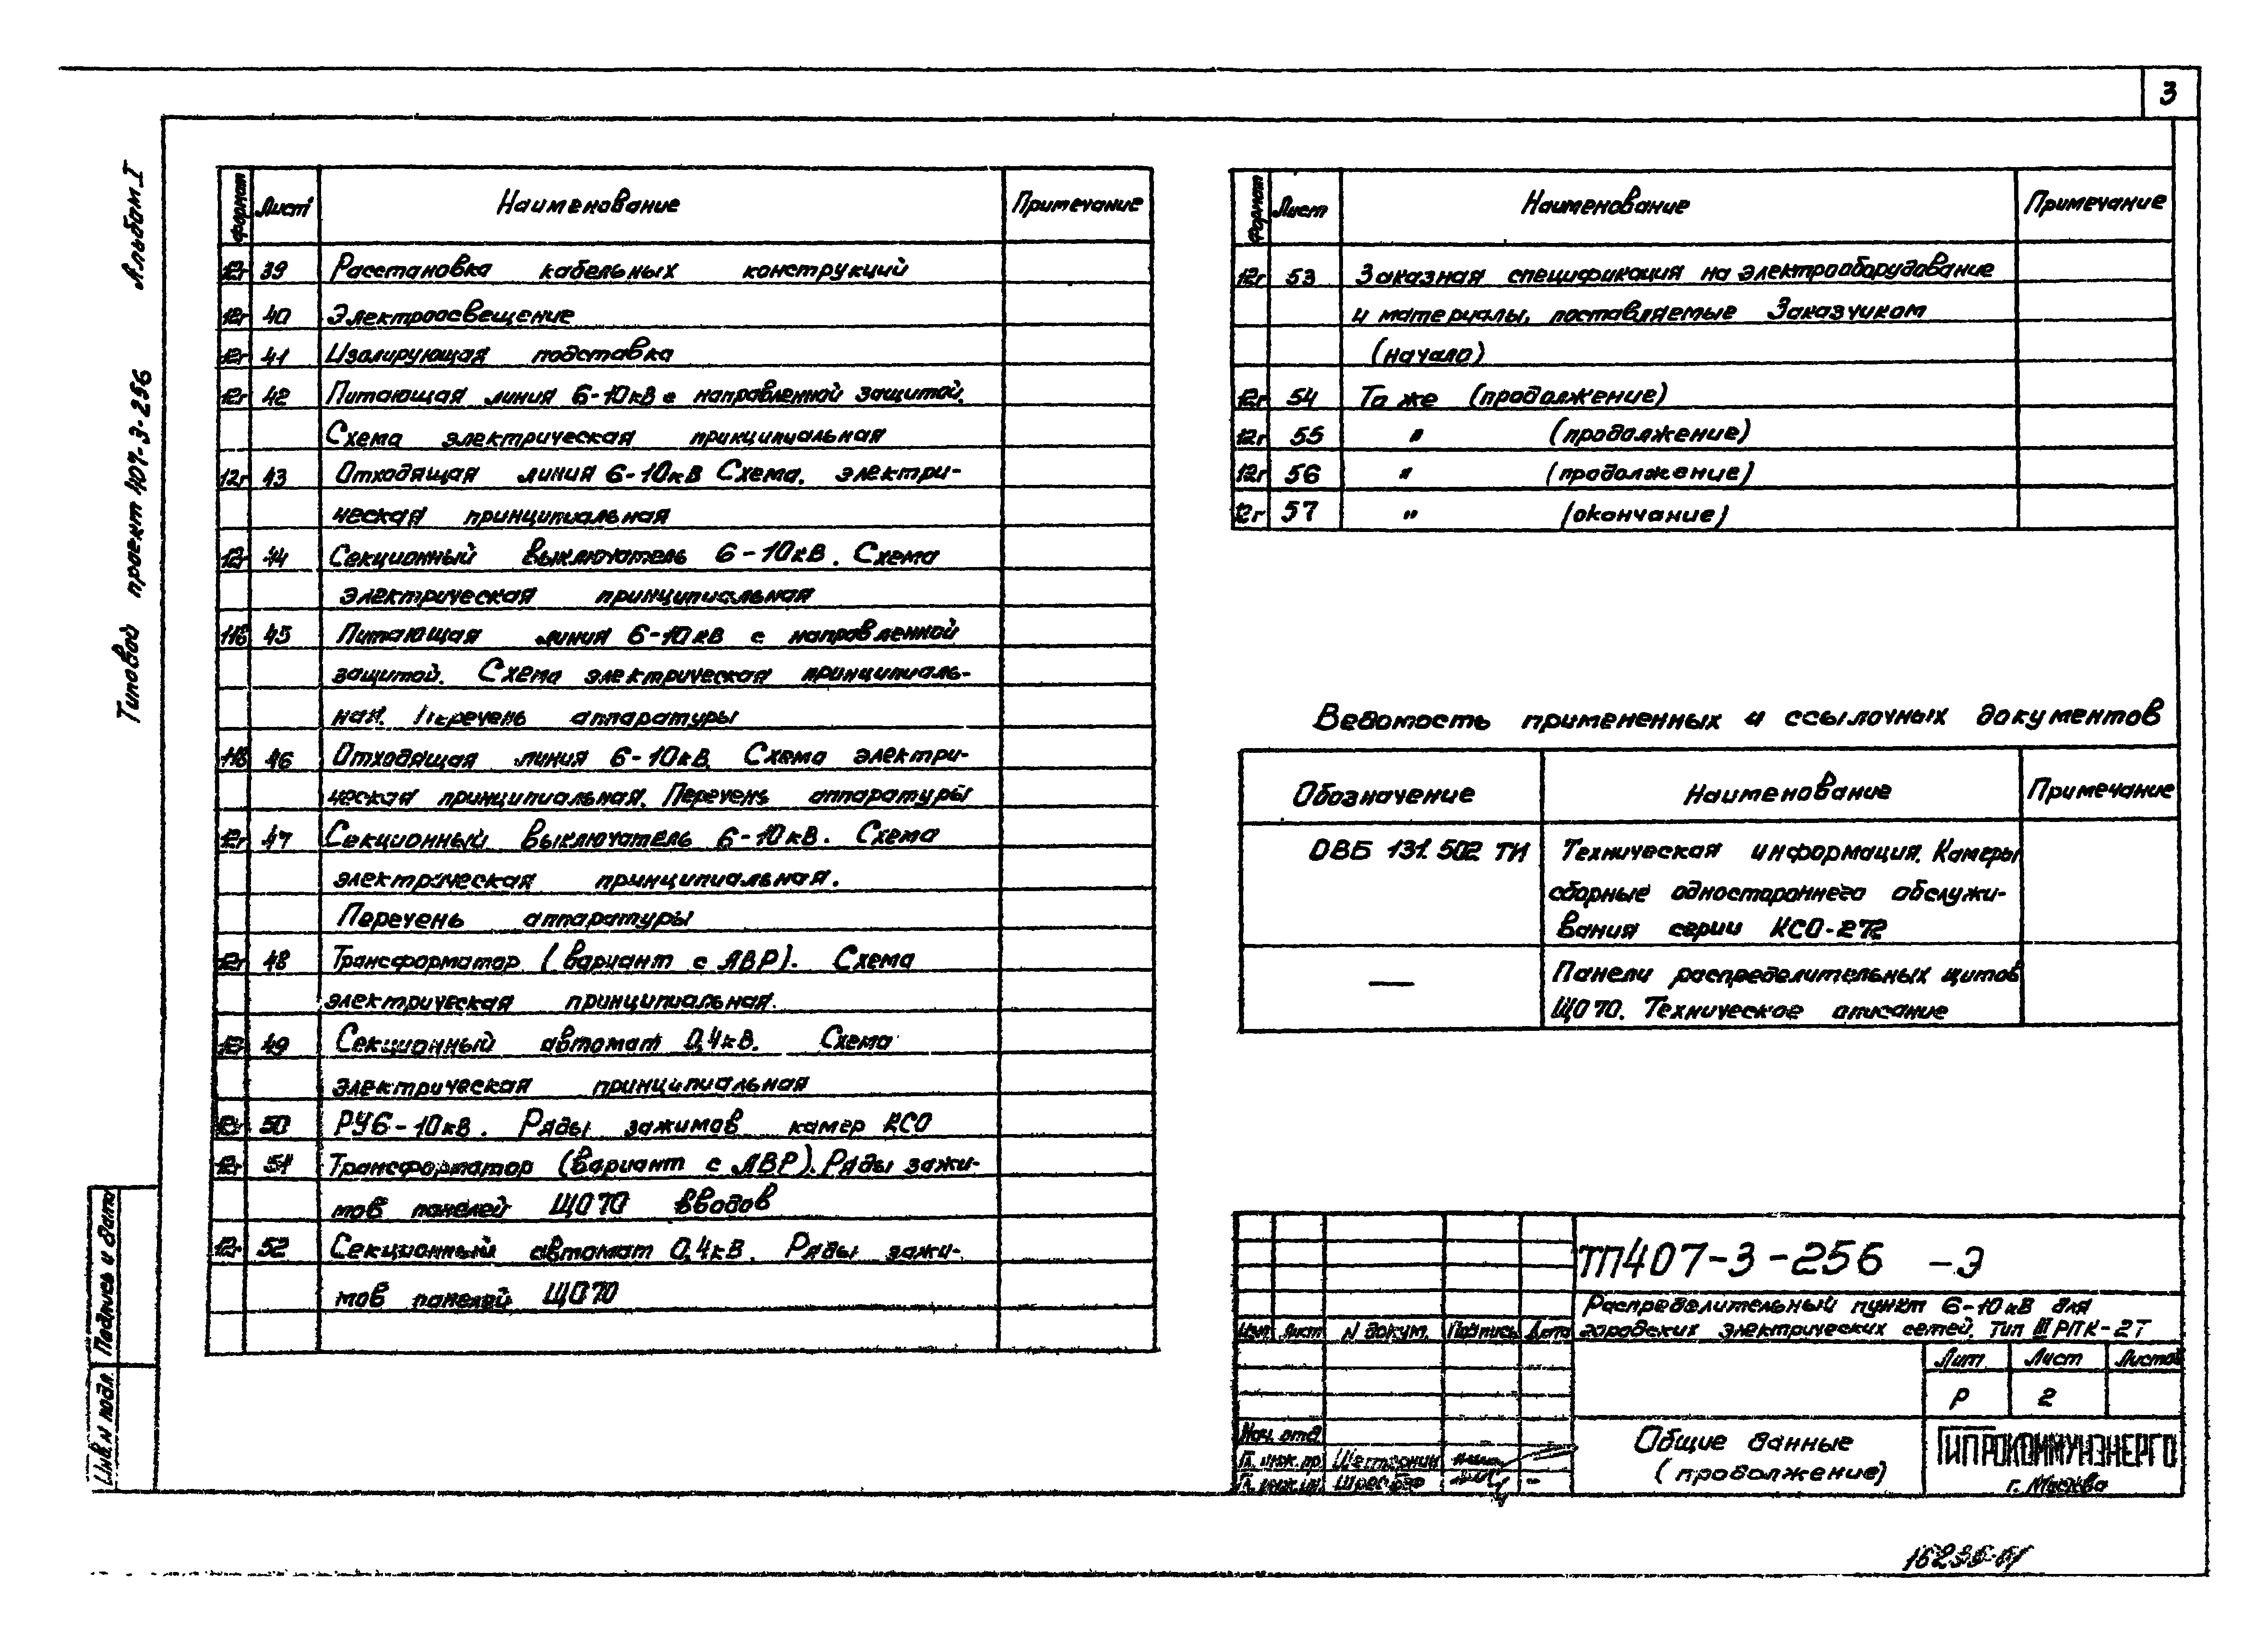 3
Альбом I
Типовой проект 407-3-256
Формат Лист Наименование Примечание
12г 39 Расстановка кабельных конструкций
12г 40 Электроосвещение
12г 41 Изолирующая подставка
12г 42 Питающая линия 6-10кВ с направленной защитой.
Схема электрическая принципиальная
12г 43 Отходящая линия 6-10кВ Схема. электри-
ческая принципиальная
12г 44 Секционный выключатель 6-10кВ. Схема
электрическая принципиальная
11в 45 Питающая линия 6-10кВ с направленной
защитой. Схема электрическая принципиаль-
ная. Перечень аппаратуры
11в 46 Отходящая линия 6-10кВ. Схема электри-
ческая принципиальная. Перечень аппаратуры
12г 47 Секционный выключатель 6-10кВ. Схема
электрическая принципиальная.
Перечень аппаратуры
12г 48 Трансформатор (вариант с АВР). Схема
электрическая принципиальная.
49 Секционный автомат 0,4кВ. Схема
электрическая принципиальная
12г 50 РУ6-10кВ. Ряды зажимов камер КСО
12г 51 Трансформатор (вариант с АВР). Ряды зажи-
мов панелей ЩО70 вводов
12г 52 Секционный автомат 0,4кВ. Ряды зажи-
мов панелей ЩО70
Формат Лист Наименование Примечание
12г 53 Заказная спецификация на электрооборудование
и материалы, поставляемые Заказчиком
(начало)
12г 54 То же (продолжение)
12г 55 " (продолжение)
12г 56 " (продолжение)
12г 57 " (окончание)
Ведомость примененных и ссылочных документов
Обозначение Наименование Примечание
ОВБ 131.502 ТИ Техническая информация. Камеры
сборные одностороннего обслужи-
вания серии КСО-272
— Панели распределительных щитов
ЩО70. Техническое описание
ТП407-3-256 -Э
Распределительный пункт 6-10кВ для
городских электрических сетей. Тип III РПК-2Т
Изм. Лист N докум. Подпись Дата
Лит Лист Листов
Р 2
Общие данные
(продолжение)
ГИПРОКОММУНЭНЕРГО
г. Москва
Нач. отд.
Гл. инж. пр.
Гл. инж. ин.
Подпись и дата
Инв. N подл.